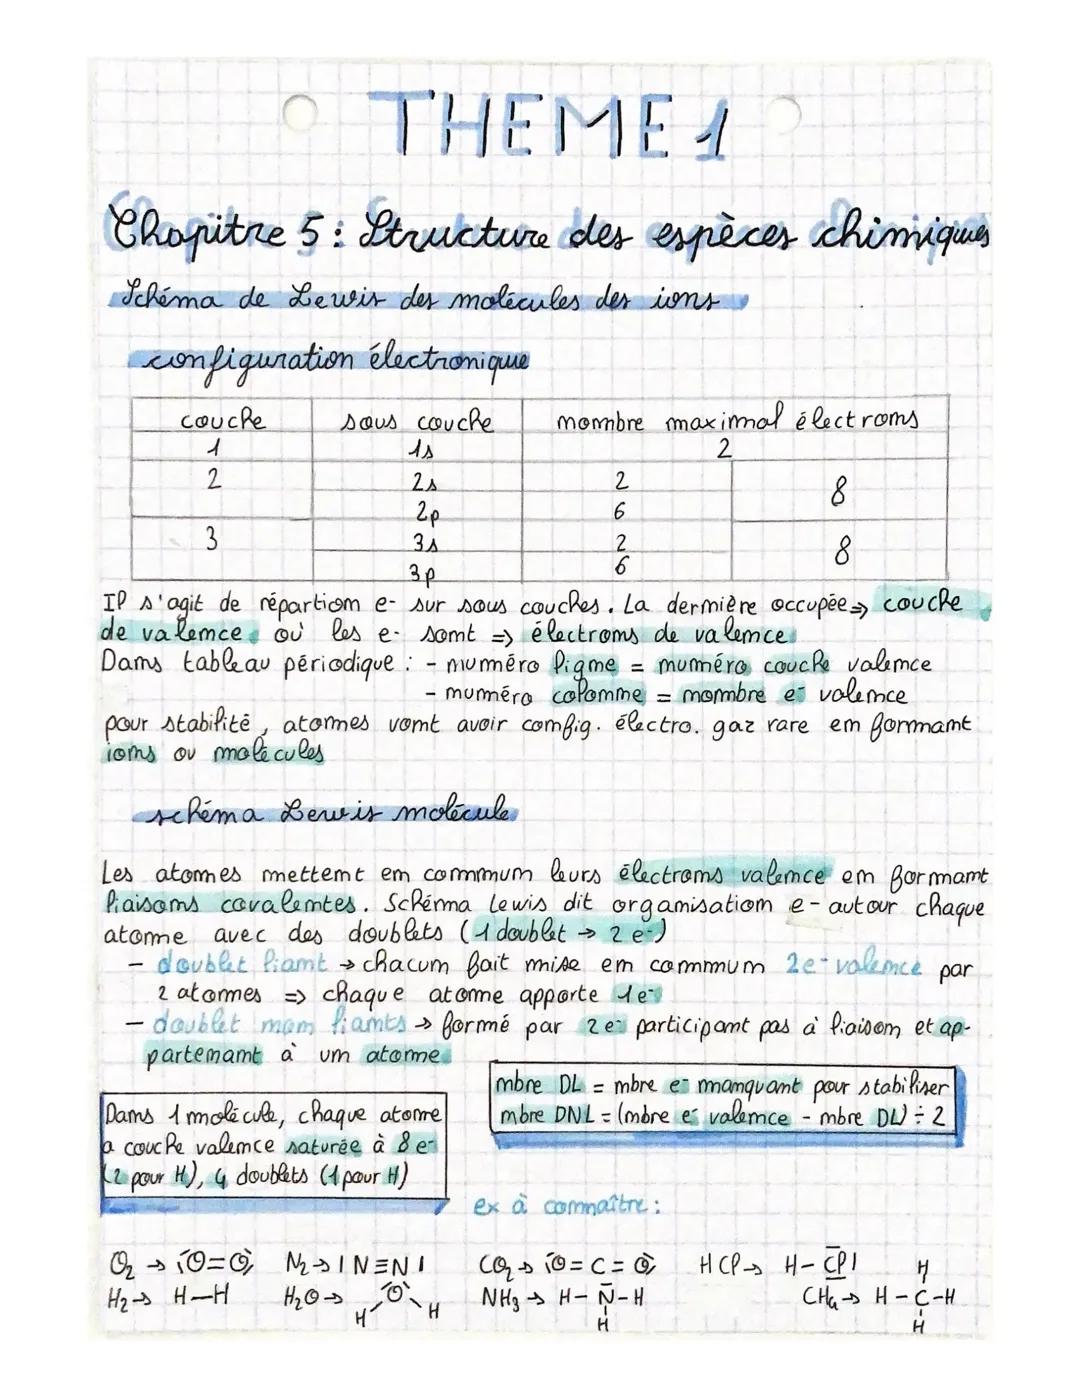 THEME 1
Chapitre 5 : Structure des espèces chimiques
Schéma de Lewis des molécules des ions
configuration électronique
couche sous couche nombre maximal électrons
1 1s 2
2 2s 2 8
2p 6
3 3s 2 8
3p 6
Il s'agit de répartion e- sur sous couches. La dernière occupée => couche
de valence où les e- sont => électrons de valence
Dans tableau périodique : - numéro ligne = numéro couche valence
- numéro colonne = nombre e- valence
pour stabilité, atomes vont avoir config. électro. gaz rare en formant
ions ou molécules
schéma Lewis molécule
Les atomes mettent en commun leurs électrons valence en formant
liaisons covalentes. Schéma Lewis dit organisation e- autour chaque
atome avec des doublets (1 doublet → 2 e-)
- doublet liant → chacun fait mise en commun 2e- valence par
2 atomes => chaque atome apporte 1e-
- doublet non liants → formé par 2 e- participant pas à liaison et ap-
partenant à un atome
nbre DL = nbre e- manquant pour stabiliser
nbre DNL = (nbre e- valence - nbre DL) ÷ 2
Dans 1 molécule, chaque atome
a couche valence saturée à 8 e-
(2 pour H), 4 doublets (1 pour H)
ex à connaître :
O₂ → O=O N₂ → |N≡N| CO₂ → O=C=O HCl → H-Cl| H
H₂ → H—H H₂O → O NH₃ → H-N-H CH₄ → H-C-H
H H H H